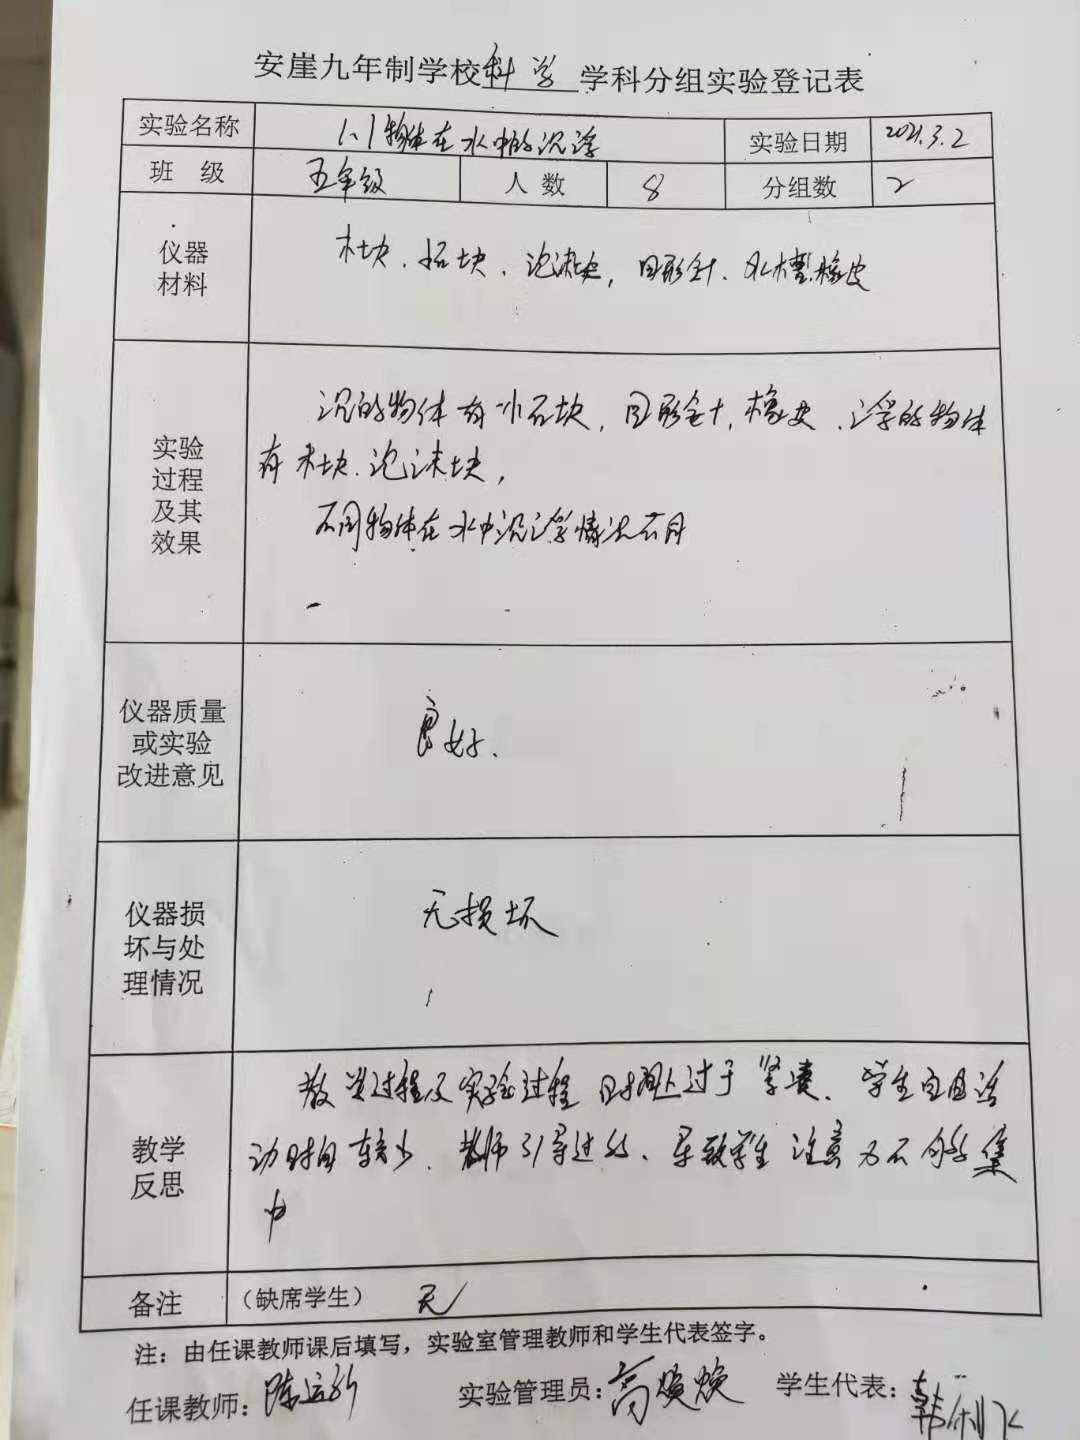 安崖九年制学校科学学科分组实验登记表
实验名称 1.1物体在水中的沉浮 实验日期 2021.3.2
班 级 五年级 人 数 8 分组数 2
仪器
材料
木块、石块、泡沫块，回形针、水槽橡皮
实验
过程
及其
效果
沉的物体有小石块，回形针，橡皮、浮的物体
有木块、泡沫块，
不同物体在水中沉浮情况不同
仪器质量
或实验
改进意见
良好、
仪器损
坏与处
理情况
无损坏
教学
反思
教学过程及实验过程时间上过于紧凑、学生自由活
动时间较少、教师引导过多、导致学生注意力不够集
中
备注 （缺席学生） 无
注：由任课教师课后填写，实验室管理教师和学生代表签字。
任课教师： 实验管理员： 学生代表：